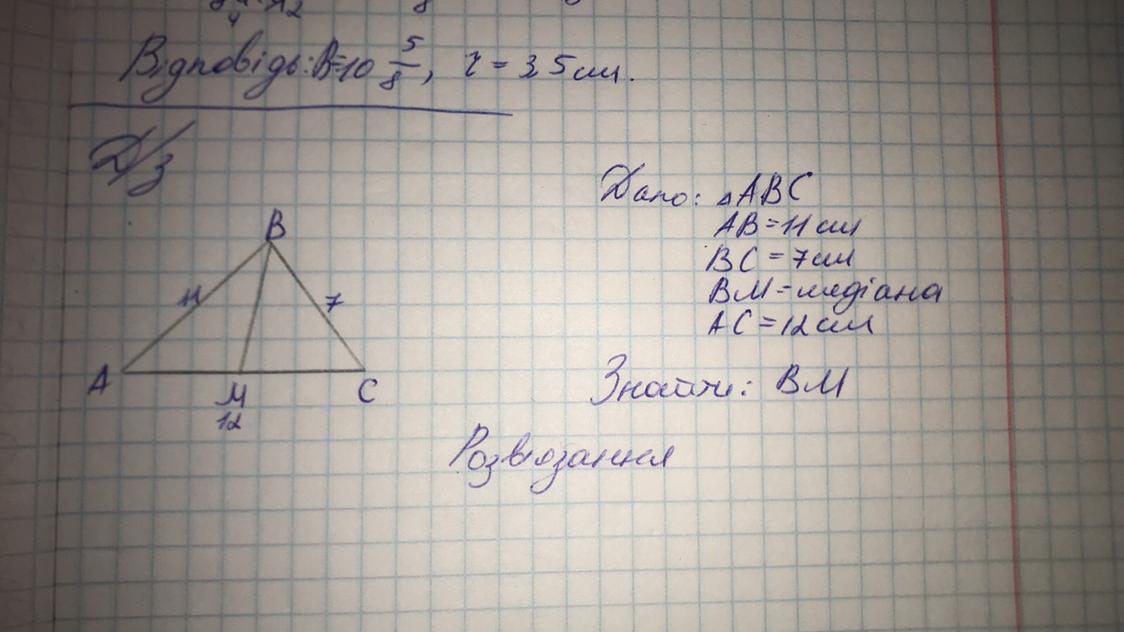 Відповідь: R=10 5/8, r = 3,5 см.
Д/з
Дано: △ABC
AB=11 см
BC=7 см
BM-медіана
AC=12 см
B
11
7
A
M
C
12
Знайти: BM
Розв'язання